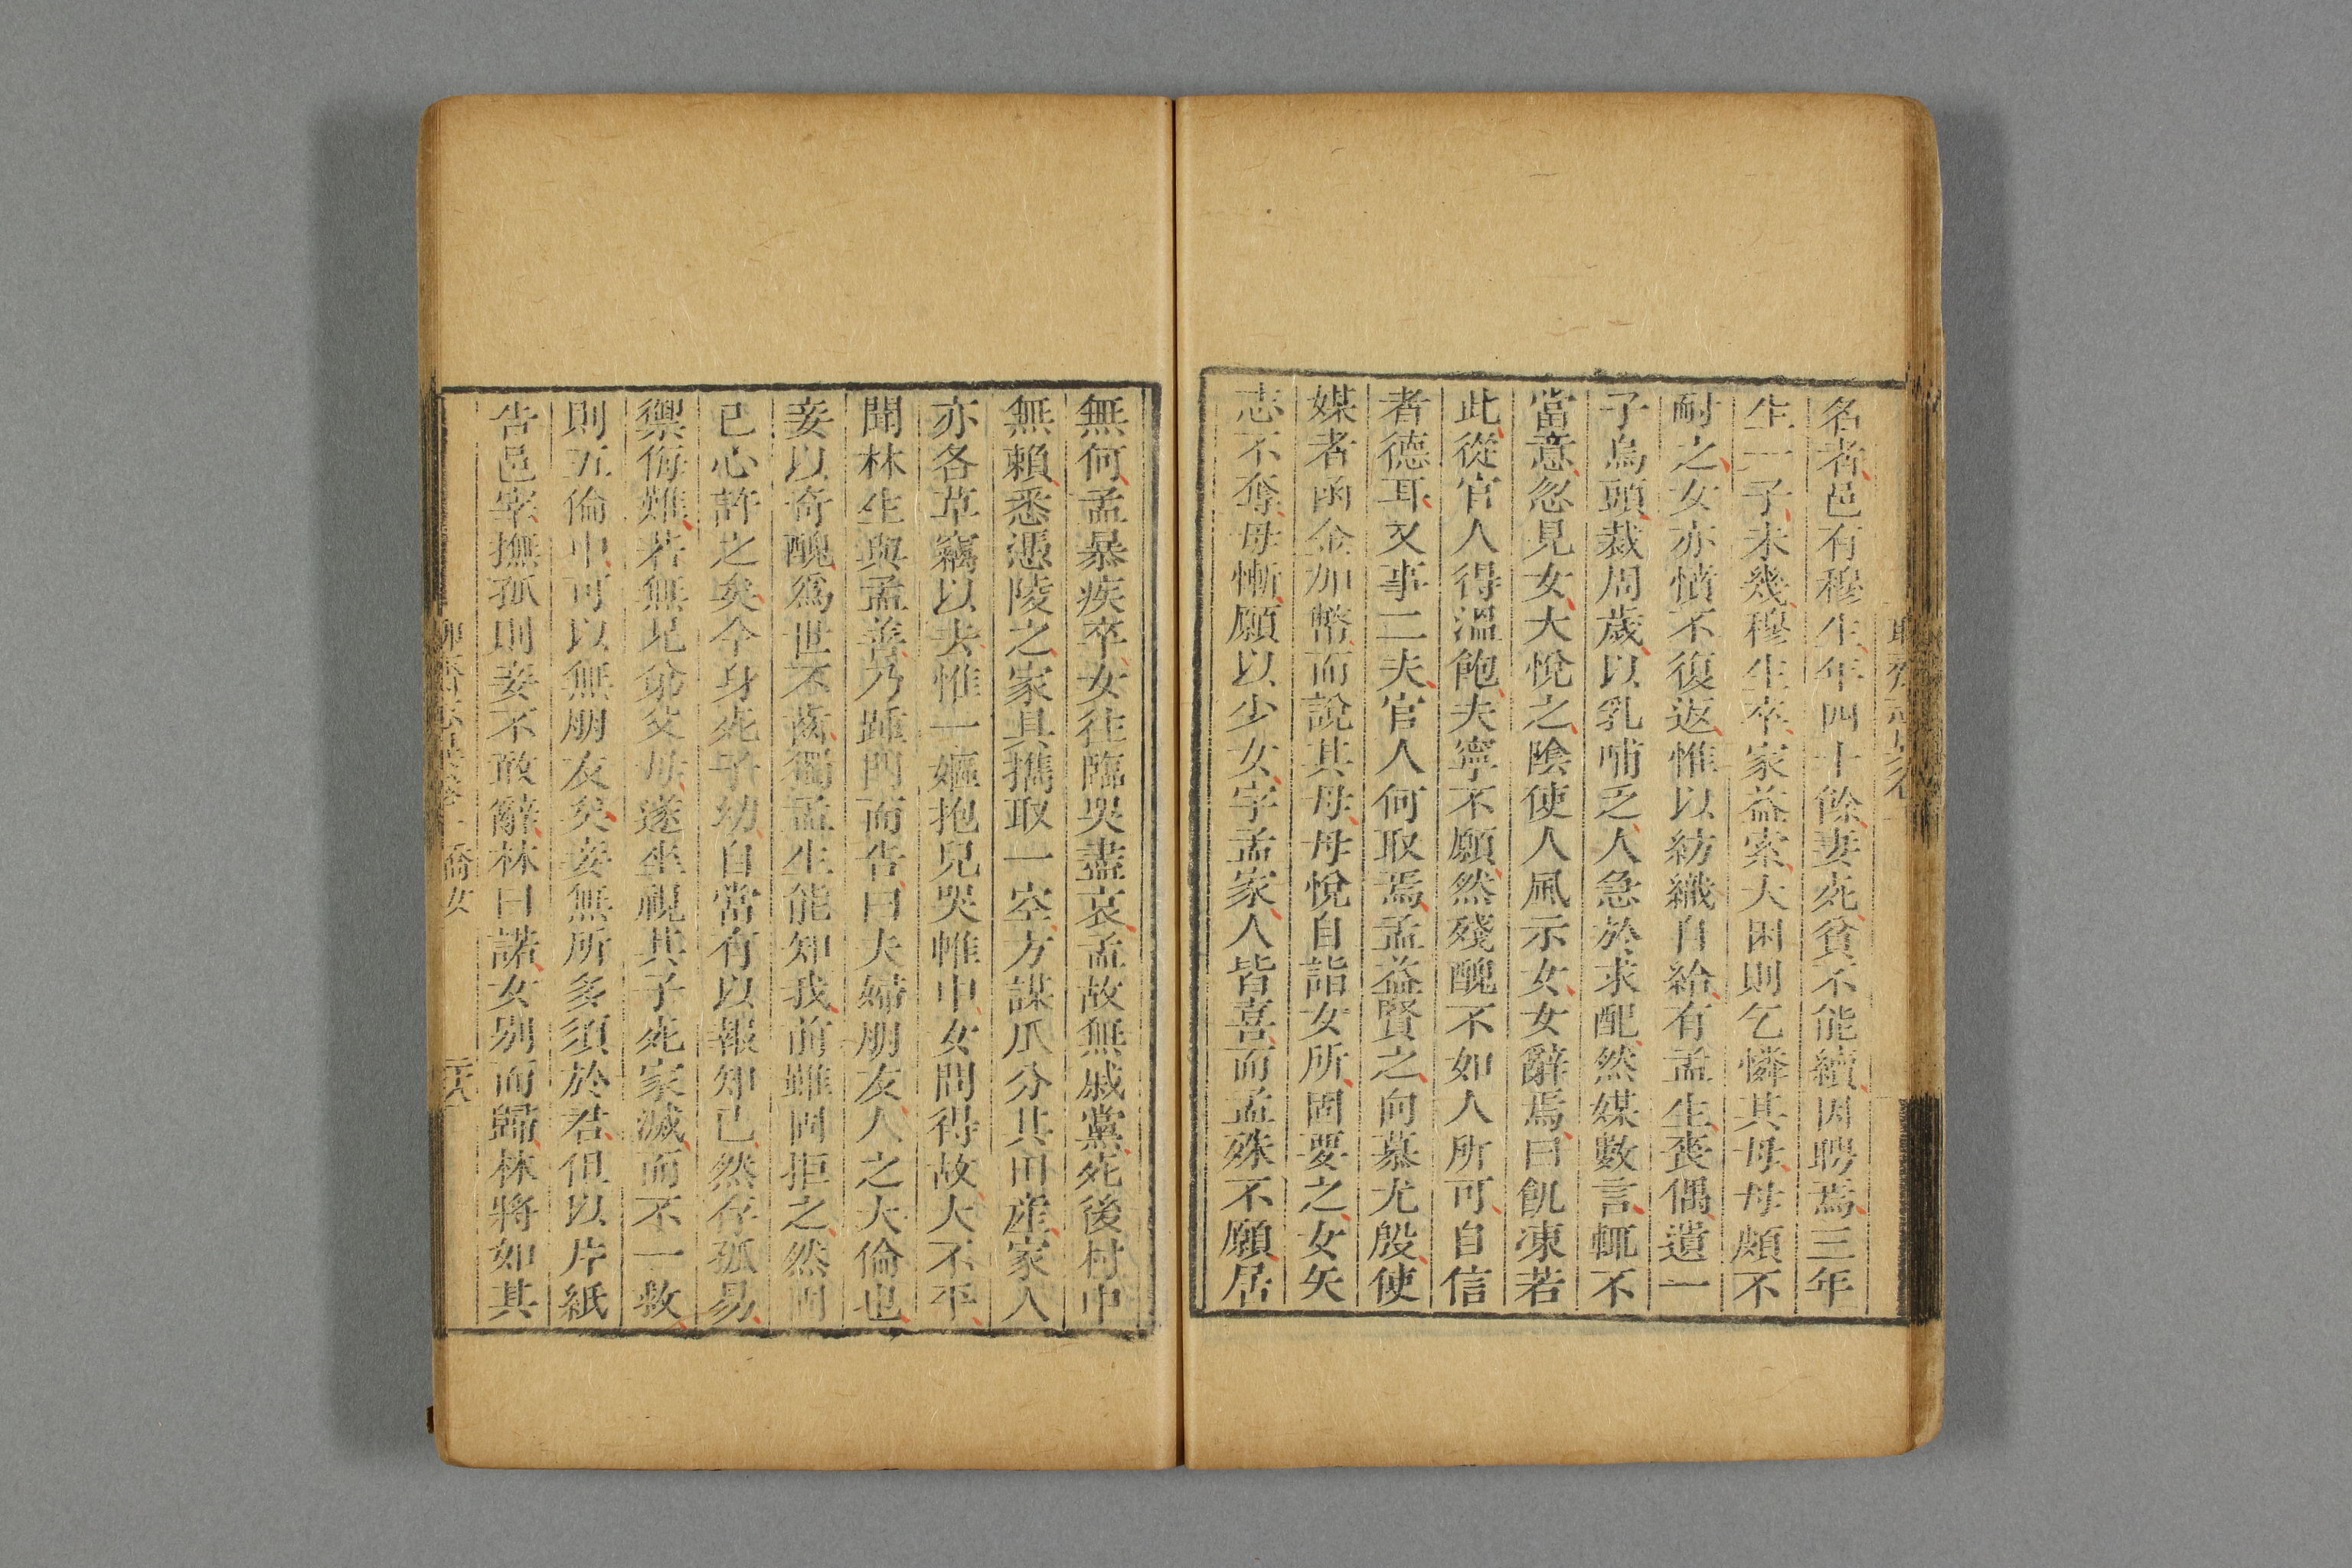 名者邑有穆生年四十餘妻死貧不能續因聘焉三年
生一子未幾穆生卒家益索大困則乞憐其母母頗不
耐之女亦憤不復返惟以紡織自給有孟生喪偶遺一
子烏頭裁周歲以乳哺乏人急於求配然媒數言輒不
當意忽見女大悅之陰使人風示女女辭焉曰飢凍若
此從官人得溫飽夫寧不願然殘醜不如人所可自信
者德耳又事二夫官人何取焉孟益賢之向慕尤殷使
媒者函金加幣而說其母母悅自詣女所固要之女矢
志不奪母慚願以少女字孟家人皆喜而孟殊不願居
無何孟暴疾卒女往臨哭盡哀孟故無戚黨死後村中
無賴悉憑陵之家具攜取一空方謀瓜分其田產家人
亦各草竊以去惟一嫗抱兒哭帷中女問得故大不平
聞林生與孟善乃踵門而告曰夫婦朋友人之大倫也
妾以奇醜爲世不齒獨孟生能知我前雖固拒之然固
已心許之矣今身死子幼自當有以報知己然存孤易
禦侮難若無兄弟父母遂坐視其子死家滅而不一救
則五倫中可以無朋友矣妾無所多須於君但以片紙
告邑宰撫孤則妾不敢辭林曰諾女別而歸林將如其
喬女